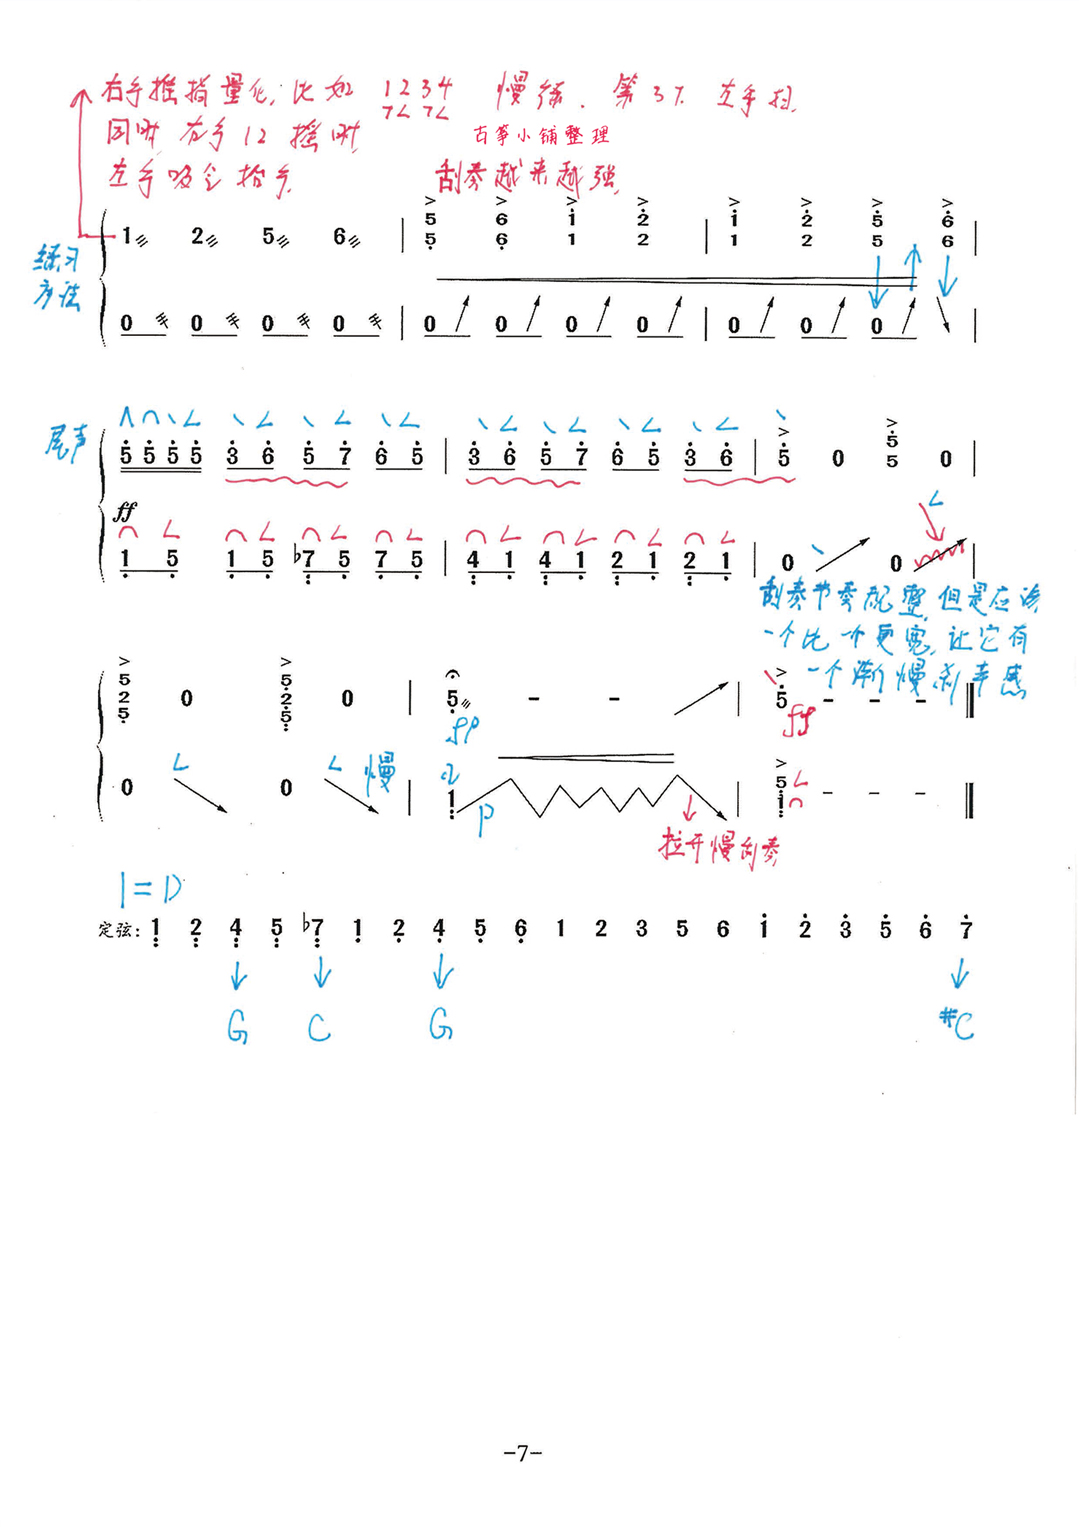 右手摇指量化,比如 1234 慢练.第3个 左手扫
同时 右手12 摇时,
古筝小铺整理
左手吸会抬手
刮奏越来越强
> > > > > > > >
5 6 1 2 1 2 5 6
1 2 5 6 | 5 6 1 2 | 1 2 5 6 |
练习
方法
0 0 0 0 | 0 0 0 0 | 0 0 0
尾声
5 5 5 5 3 6 5 7 6 5 | 3 6 5 7 6 5 3 6 | 5 0 5 0 |
5
ff
1 5 1 5 ♭7 5 7 5 | 4 1 4 1 2 1 2 1 | 0 0
刮奏节奏配整,但是应该
一个比一个更宽,让它有
一个渐慢刹车感
> >
5 5
2 0 2 0 | 5 - - | 5 - - -
5 5
fp ff
慢
0 0 | 1 5 - - -
1
p
拉开慢刮奏
1=D
定弦: 1 2 4 5 ♭7 1 2 4 5 6 1 2 3 5 6 1 2 3 5 6 7
G C G #C
-7-